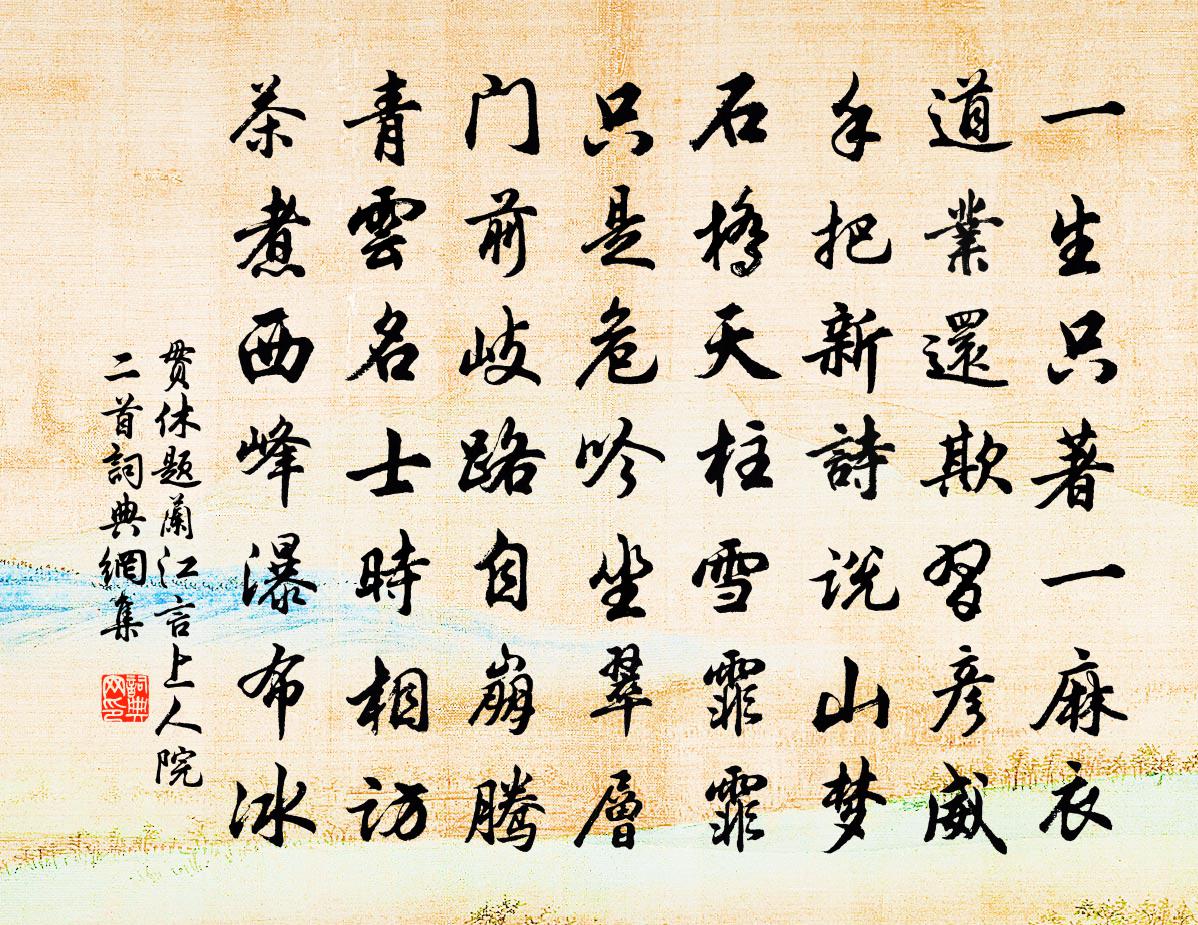 一生只著一麻衣
道業還欺習彥威
手把新詩説山梦
石橋天柱雪霏霏
只是危吟坐翠層
门前岐路自崩騰
青雲名士時相访
茶煮西峰瀑布冰
贯休题蘭江言上人院
二首詞典網集
詞典
网